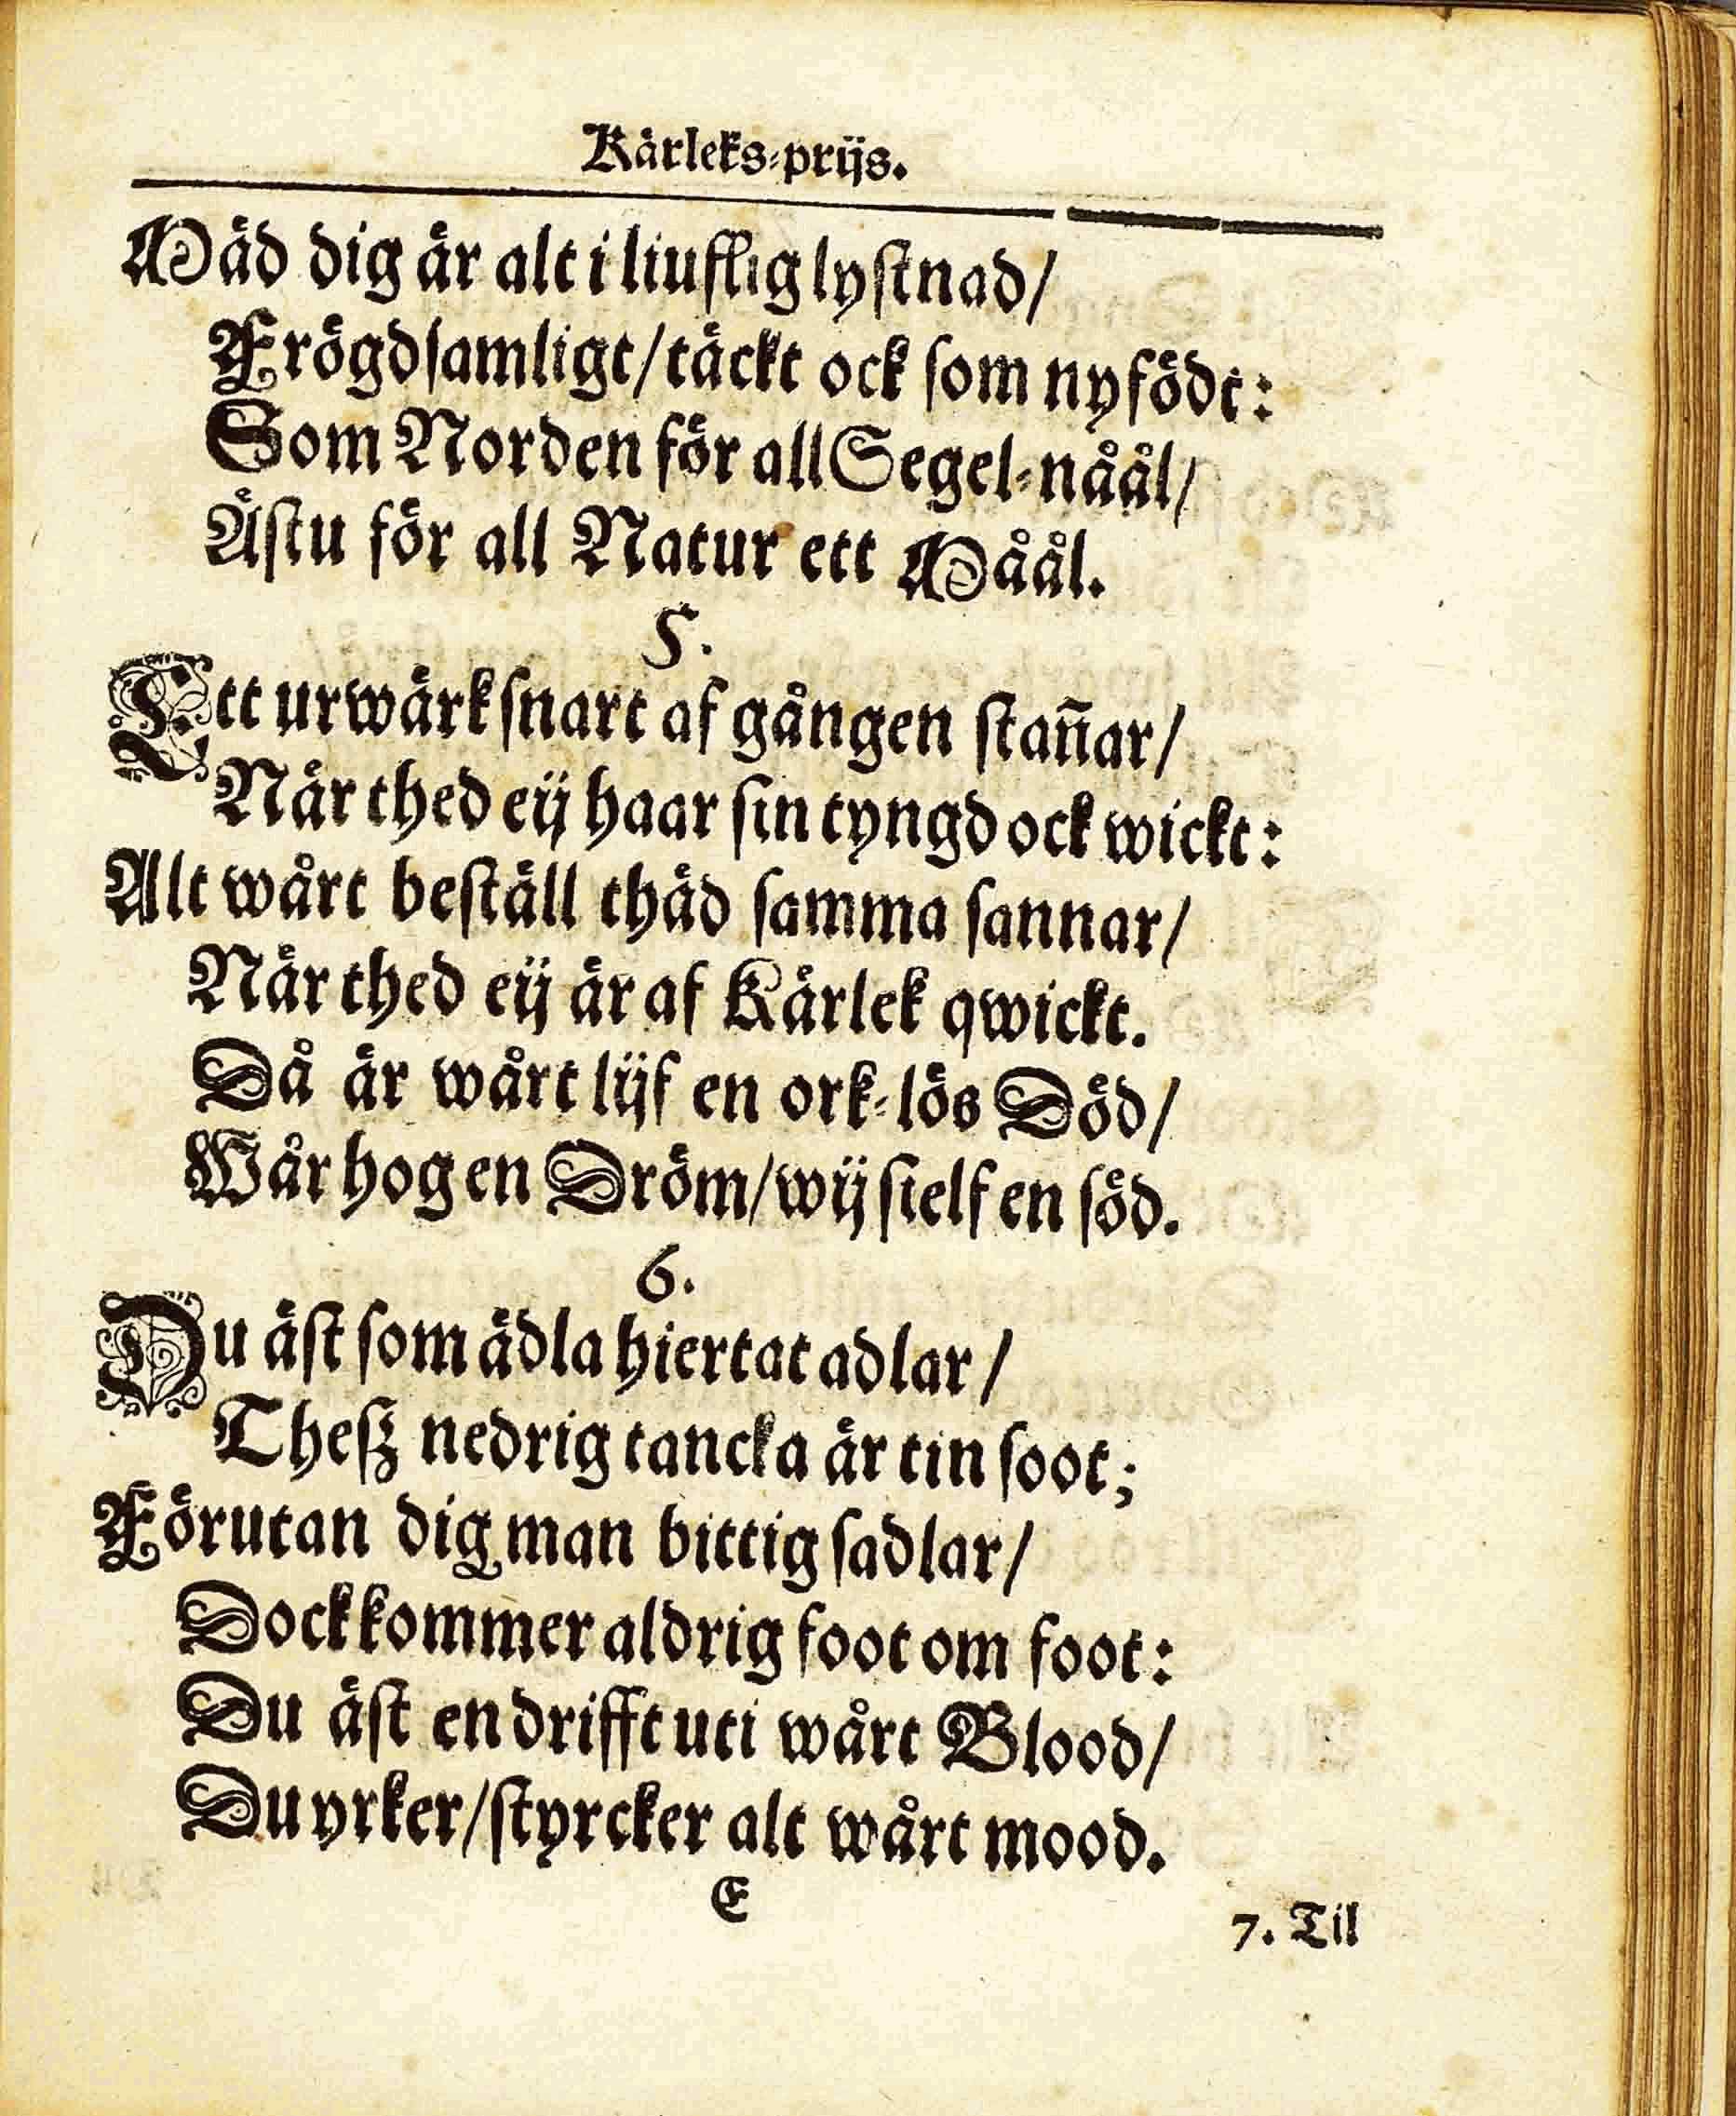 Kärleks-prijs.
Mäd dig är alt i liuflig lystnad/
Frögdsamligt/täckt ock som nyfödt:
Som Norden för all Segel-näål/
Ästu för all Natur ett Måål.
5.
Ett urwärk snart af gången stañar/
När thed eij haar sin tyngd ock wickt:
Alt wårt beställ thäd samma sannar/
När thed eij är af Kärlek qwickt.
Då är wårt lijf en ork-lös Död/
Wår hog en Dröm/wij sielf en söd.
6.
Du äst som ädla hiertat adlar/
Thesz nedrig tancka är tin soot;
Förutan dig man bittig sadlar/
Dock kommer aldrig foot om foot:
Du äst en drifft uti wårt Blood/
Du yrker/styrcker alt wårt mood.
E
7. Til